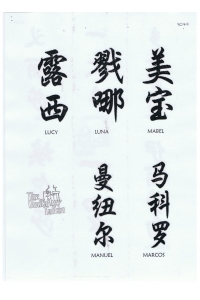 露西
LUCY
戮哪
LUNA
美宝
MABEL
曼纽尔
MANUEL
马科罗
MARCOS